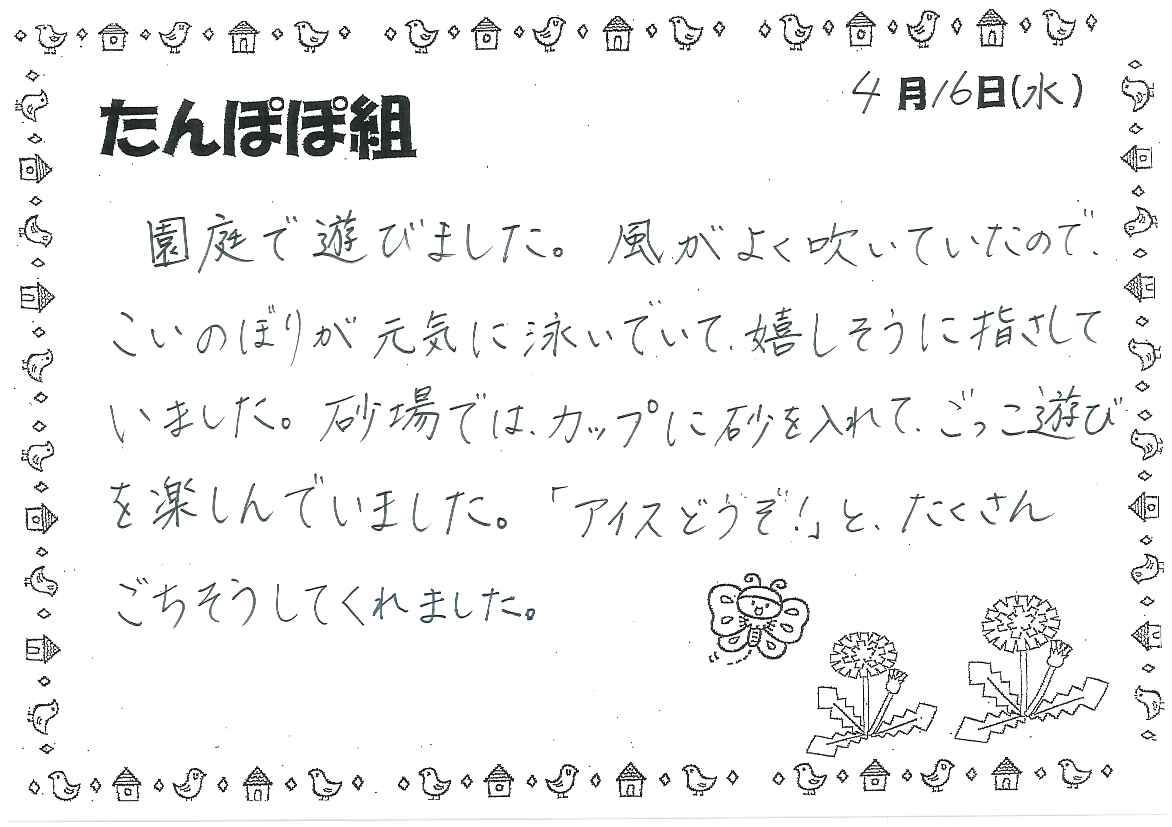 4月16日(水)
たんぽぽ組
園庭で遊びました。風がよく吹いていたので、
こいのぼりが元気に泳いでいて、嬉しそうに指さして
いました。砂場では、カップに砂を入れて、ごっこ遊び
を楽しんでいました。「アイスどうぞ!」と、たくさん
ごちそうしてくれました。